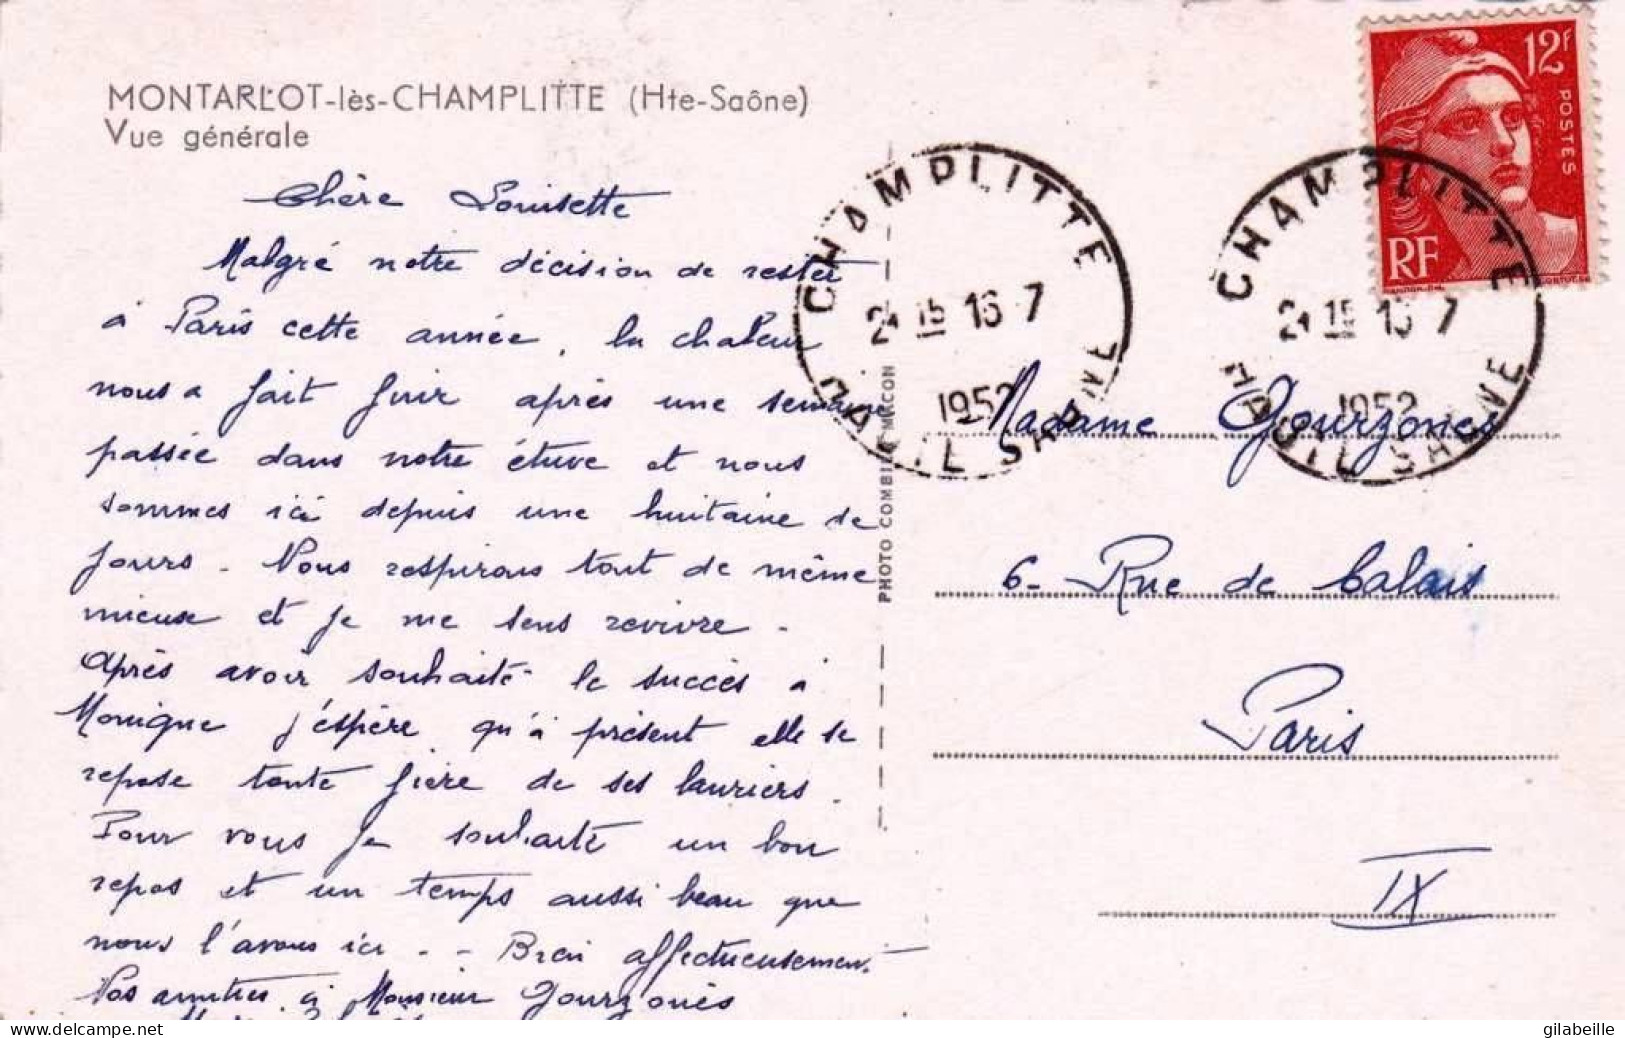 MONTARLOT-lès-CHAMPLITTE (Hte-Saône)
Vue générale
Chère Louisette
Malgré notre décision de rester
à Paris cette année, la chaleur
nous a fait fuir après une semaine
passée dans notre étuve et nous
sommes ici depuis une huitaine de
jours. Nous respirons tout de même
mieux et je me sens revivre.
Après avoir souhaité le succès à
Monique j'espère qu'à présent elle se
repose toute fière de ses lauriers.
Pour vous je souhaite un bon
repos et un temps aussi beau que
nous l'avons ici. - Bien affectueusement
Nos amitiés à Monsieur Gourzonès
PHOTO COMBIER MACON
12F
POSTES
RF
CHAMPLITTE
21 15 16-7
1952
HAUTE SAONE
CHAMPLITTE
21 15 16-7
1952
HAUTE SAONE
Madame Gourzones
6- Rue de Calais
Paris
IX
www.delcampe.net
gilabeille